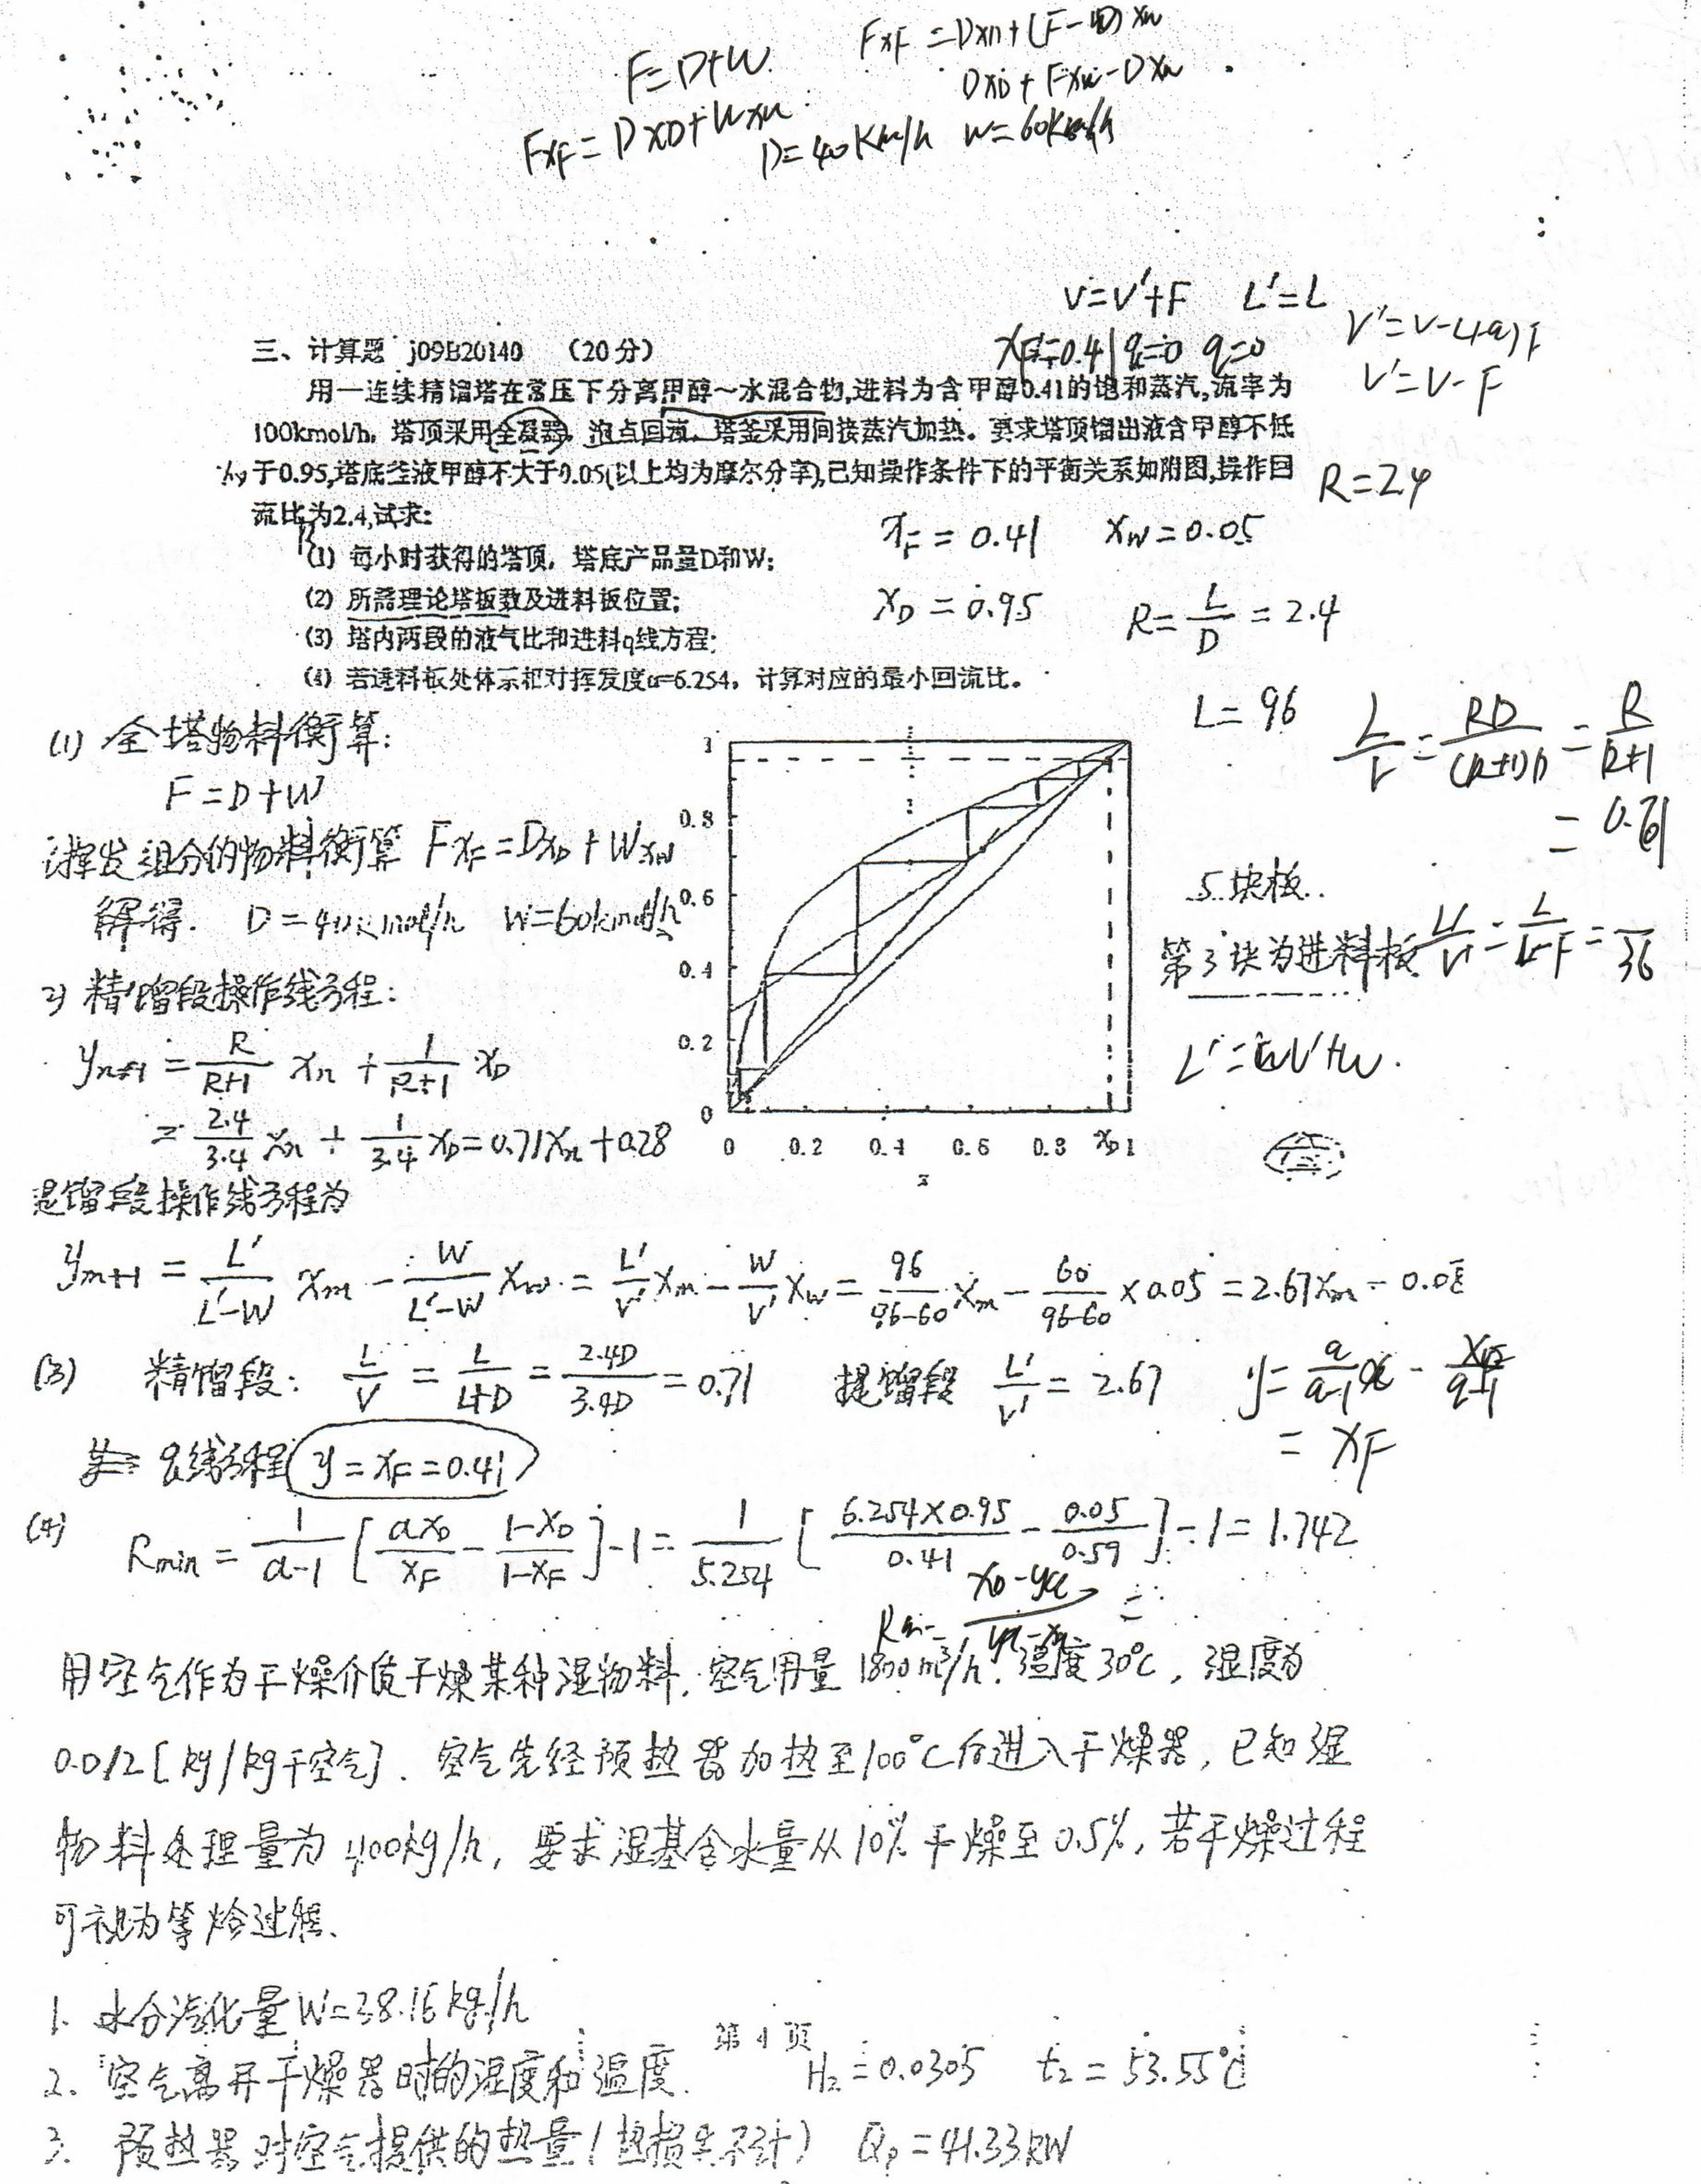 F=D+W
FxF=DxD+(F-D)xw
DxD+Fxw-Dxw
FxF=DxD+Wxw
D=40Km/h W=60Km/h
V=V'+F L'=L
V'=V-(1-q)F
xF=0.41 q=0 q=0
V'=V-F
三、计算题 j09B20140 (20分)
用一连续精馏塔在常压下分离甲醇~水混合物,进料为含甲醇0.41的饱和蒸汽,流率为
100kmol/h, 塔顶采用全凝器, 泡点回流, 塔釜采用间接蒸汽加热。要求塔顶馏出液含甲醇不低
于0.95,塔底釜液甲醇不大于0.05(以上均为摩尔分率),已知操作条件下的平衡关系如附图,操作回
流比为2.4,试求:
R
R=2.4
(1) 每小时获得的塔顶, 塔底产品量D和W;
(2) 所需理论塔板数及进料板位置;
(3) 塔内两段的液气比和进料q线方程;
(4) 若进料板处体系相对挥发度α=6.254, 计算对应的最小回流比。
xF=0.41 xW=0.05
xD=0.95 R=L/D=2.4
L=96
L/V=RD/(R+1)D=R/R+1
=0.71
(1) 全塔物料衡算:
F=D+W
挥发组分的物料衡算 FxF=DxD+WxW
解得. D=40kmol/h W=60kmol/h
2) 精馏段操作线方程:
yn+1=R/R+1 xn+1/R+1 xD
=2.4/3.4 xn+1/3.4 xD=0.71xn+0.28
1
0.8
0.6
0.4
0.2
0
0 0.2 0.4 0.6 0.8 xD 1
x
5块板
第3块为进料板
L'/V'=L/V-F=/36
L'=V'+W.
提馏段操作线方程为
ym+1=L'/L'-W xm-W/L'-W xw=L'/V' xm-W/V' xw=96/96-60 xm-60/96-60×0.05=2.67xm-0.08
(3) 精馏段: L/V=L/L+D=2.4D/3.4D=0.71 提馏段 L'/V'=2.67
y=q/q-1 x-xF/q-1
=xF
q线方程 y=xF=0.41
(4) Rmin=1/α-1[αxD/xF-1-xD/1-xF]-1=1/5.254[6.254×0.95/0.41-0.05/0.59]-1=1.742
用空气作为干燥介质干燥某种湿物料, 空气用量1800m³/h, 温度30℃, 湿度为
0.012[kg/kg干空气]. 空气先经预热器加热至100℃后进入干燥器, 已知湿
物料处理量为400kg/h, 要求湿基含水量从10%干燥至0.5%, 若干燥过程
可视为等焓过程、
1. 水分汽化量W=38.16kg/h
第 4 页
2. 空气离开干燥器时的湿度和温度. H2=0.0305 t2=53.55℃
3. 预热器对空气提供的热量(热损失不计) Qp=41.33kW